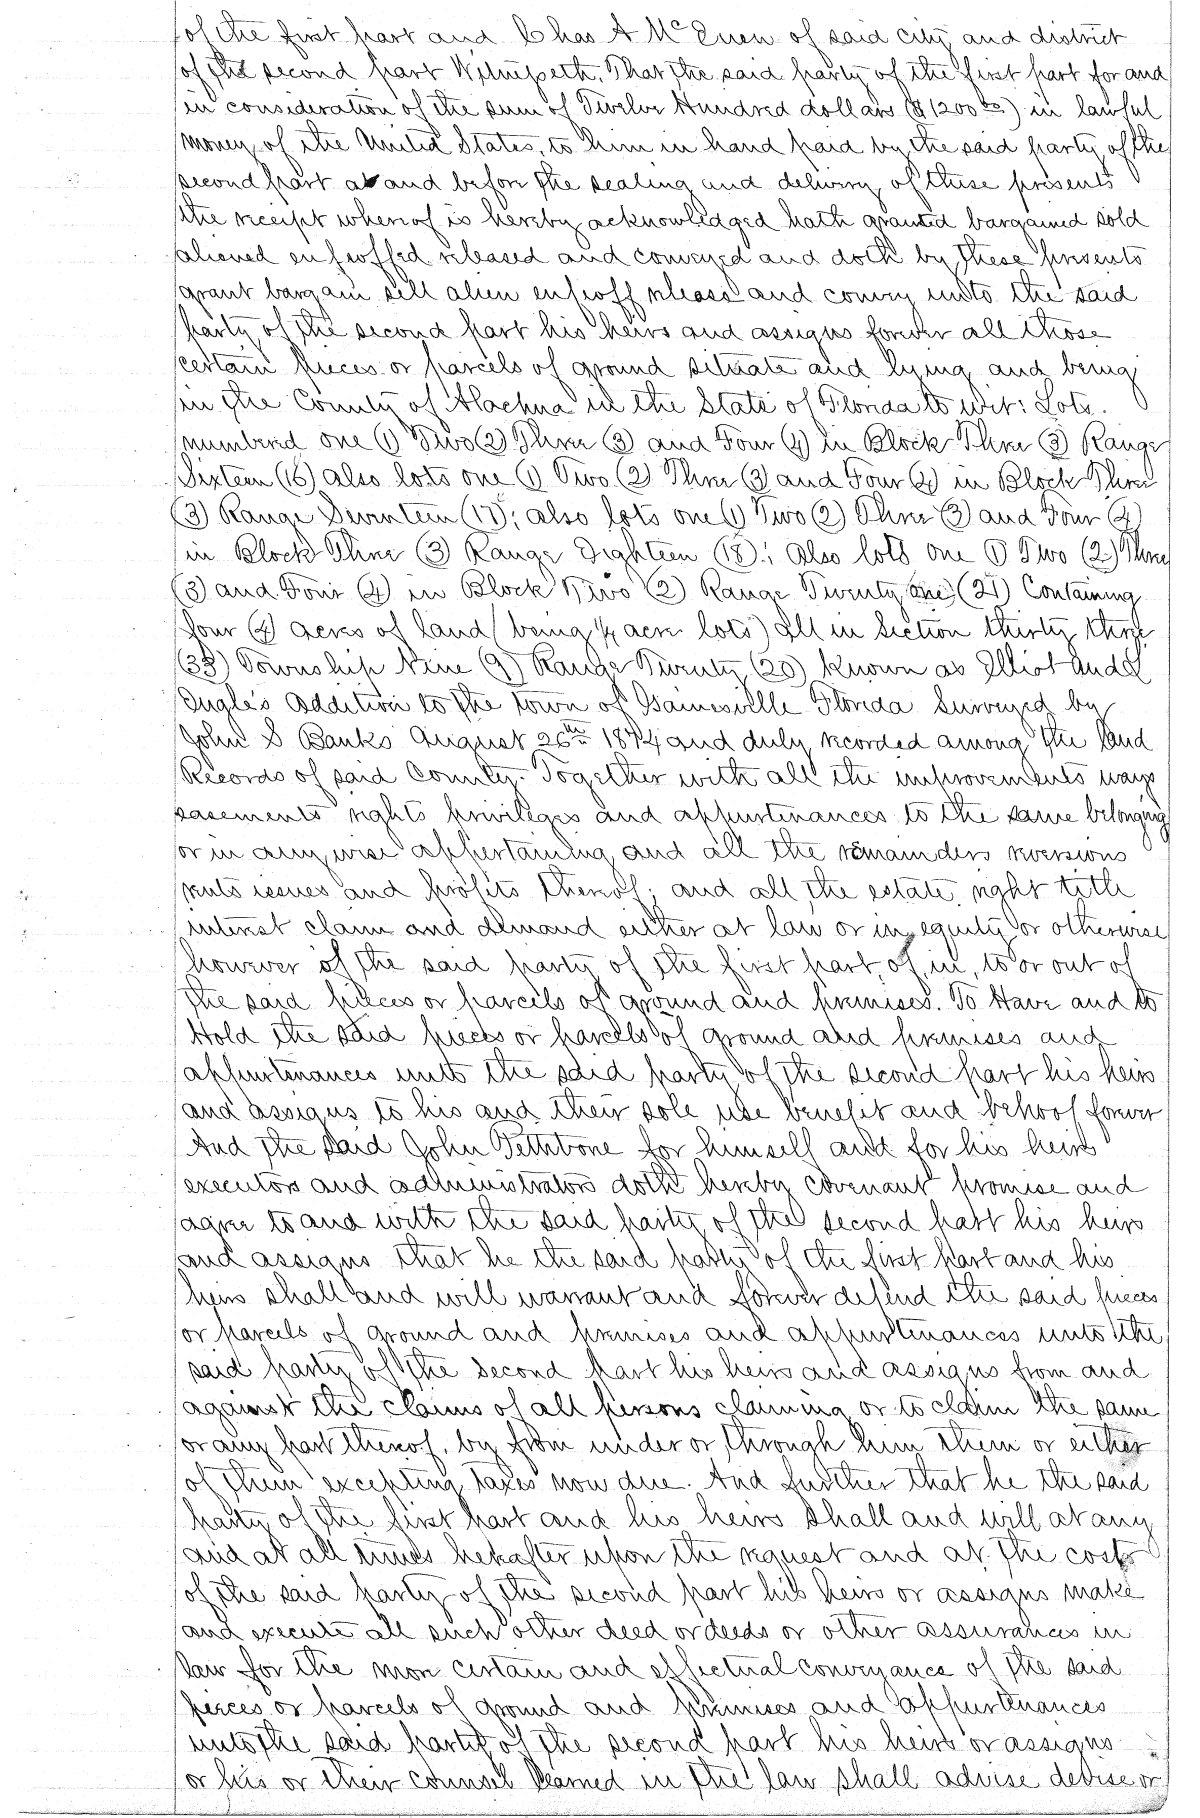 of the first part and Chas A McEuen of said city and district
of the second part Witnesseth, That the said party of the first part for and
in consideration of the sum of Twelve Hundred dollars ($1200 00) in lawful
money of the United States, to him in hand paid by the said party of the
second part at and before the sealing and delivery of these presents
the receipt whereof is hereby acknowledged hath granted bargained sold
aliened enfeoffed released and conveyed and doth by these presents
grant bargain sell alien enfeoff release and convey unto the said
party of the second part his heirs and assigns forever all those
certain pieces or parcels of ground situate and lying and being
in the County of Alachua in the State of Florida to wit: Lots.
numbered one (1) Two (2) Three (3) and Four (4) in Block Three (3) Range
Sixteen (16) also lots one (1) Two (2) Three (3) and Four (4) in Block Three
(3) Range Seventeen (17); also lots one (1) Two (2) Three (3) and Four (4)
in Block Three (3) Range Eighteen (18); Also lots one (1) Two (2) Three
(3) and Four (4) in Block Two (2) Range Twenty one (21) Containing
four (4) acres of land (being 1/4 acre lots) all in Section thirty three
(33) Township Nine (9) Range Twenty (20) known as Elliot and
Engle's addition to the town of Gainesville Florida Surveyed by
John S Banks August 26th 1874 and duly recorded among the land
Records of said County. Together with all the improvements ways
easements rights privileges and appurtenances to the same belonging
or in any wise appertaining and all the remainders reversions
rents issues and profits thereof; and all the estate right title
interest claim and demand either at law or in equity or otherwise
however of the said party of the first part, of, in, to or out of
the said pieces or parcels of ground and premises. To Have and to
Hold the said pieces or parcels of ground and premises and
appurtenances unto the said party of the second part his heirs
and assigns to his and their sole use benefit and behoof forever
And the said John Pethbone for himself and for his heirs
executors and administrators doth hereby covenant promise and
agree to and with the said party of the second part his heirs
and assigns that he the said party of the first part and his
heirs shall and will warrant and forever defend the said pieces
or parcels of ground and premises and appurtenances unto the
said party of the second part his heirs and assigns from and
against the claims of all persons claiming or to claim the same
or any part thereof, by from under or through him them or either
of them excepting taxes now due. And further that he the said
party of the first part and his heirs shall and will at any
and at all times hereafter upon the request and at the cost
of the said party of the second part his heirs or assigns make
and execute all such other deed or deeds or other assurances in
law for the more certain and effectual conveyance of the said
pieces or parcels of ground and premises and appurtenances
unto the said party of the second part his heirs or assigns
or his or their counsel learned in the law shall advise devise or